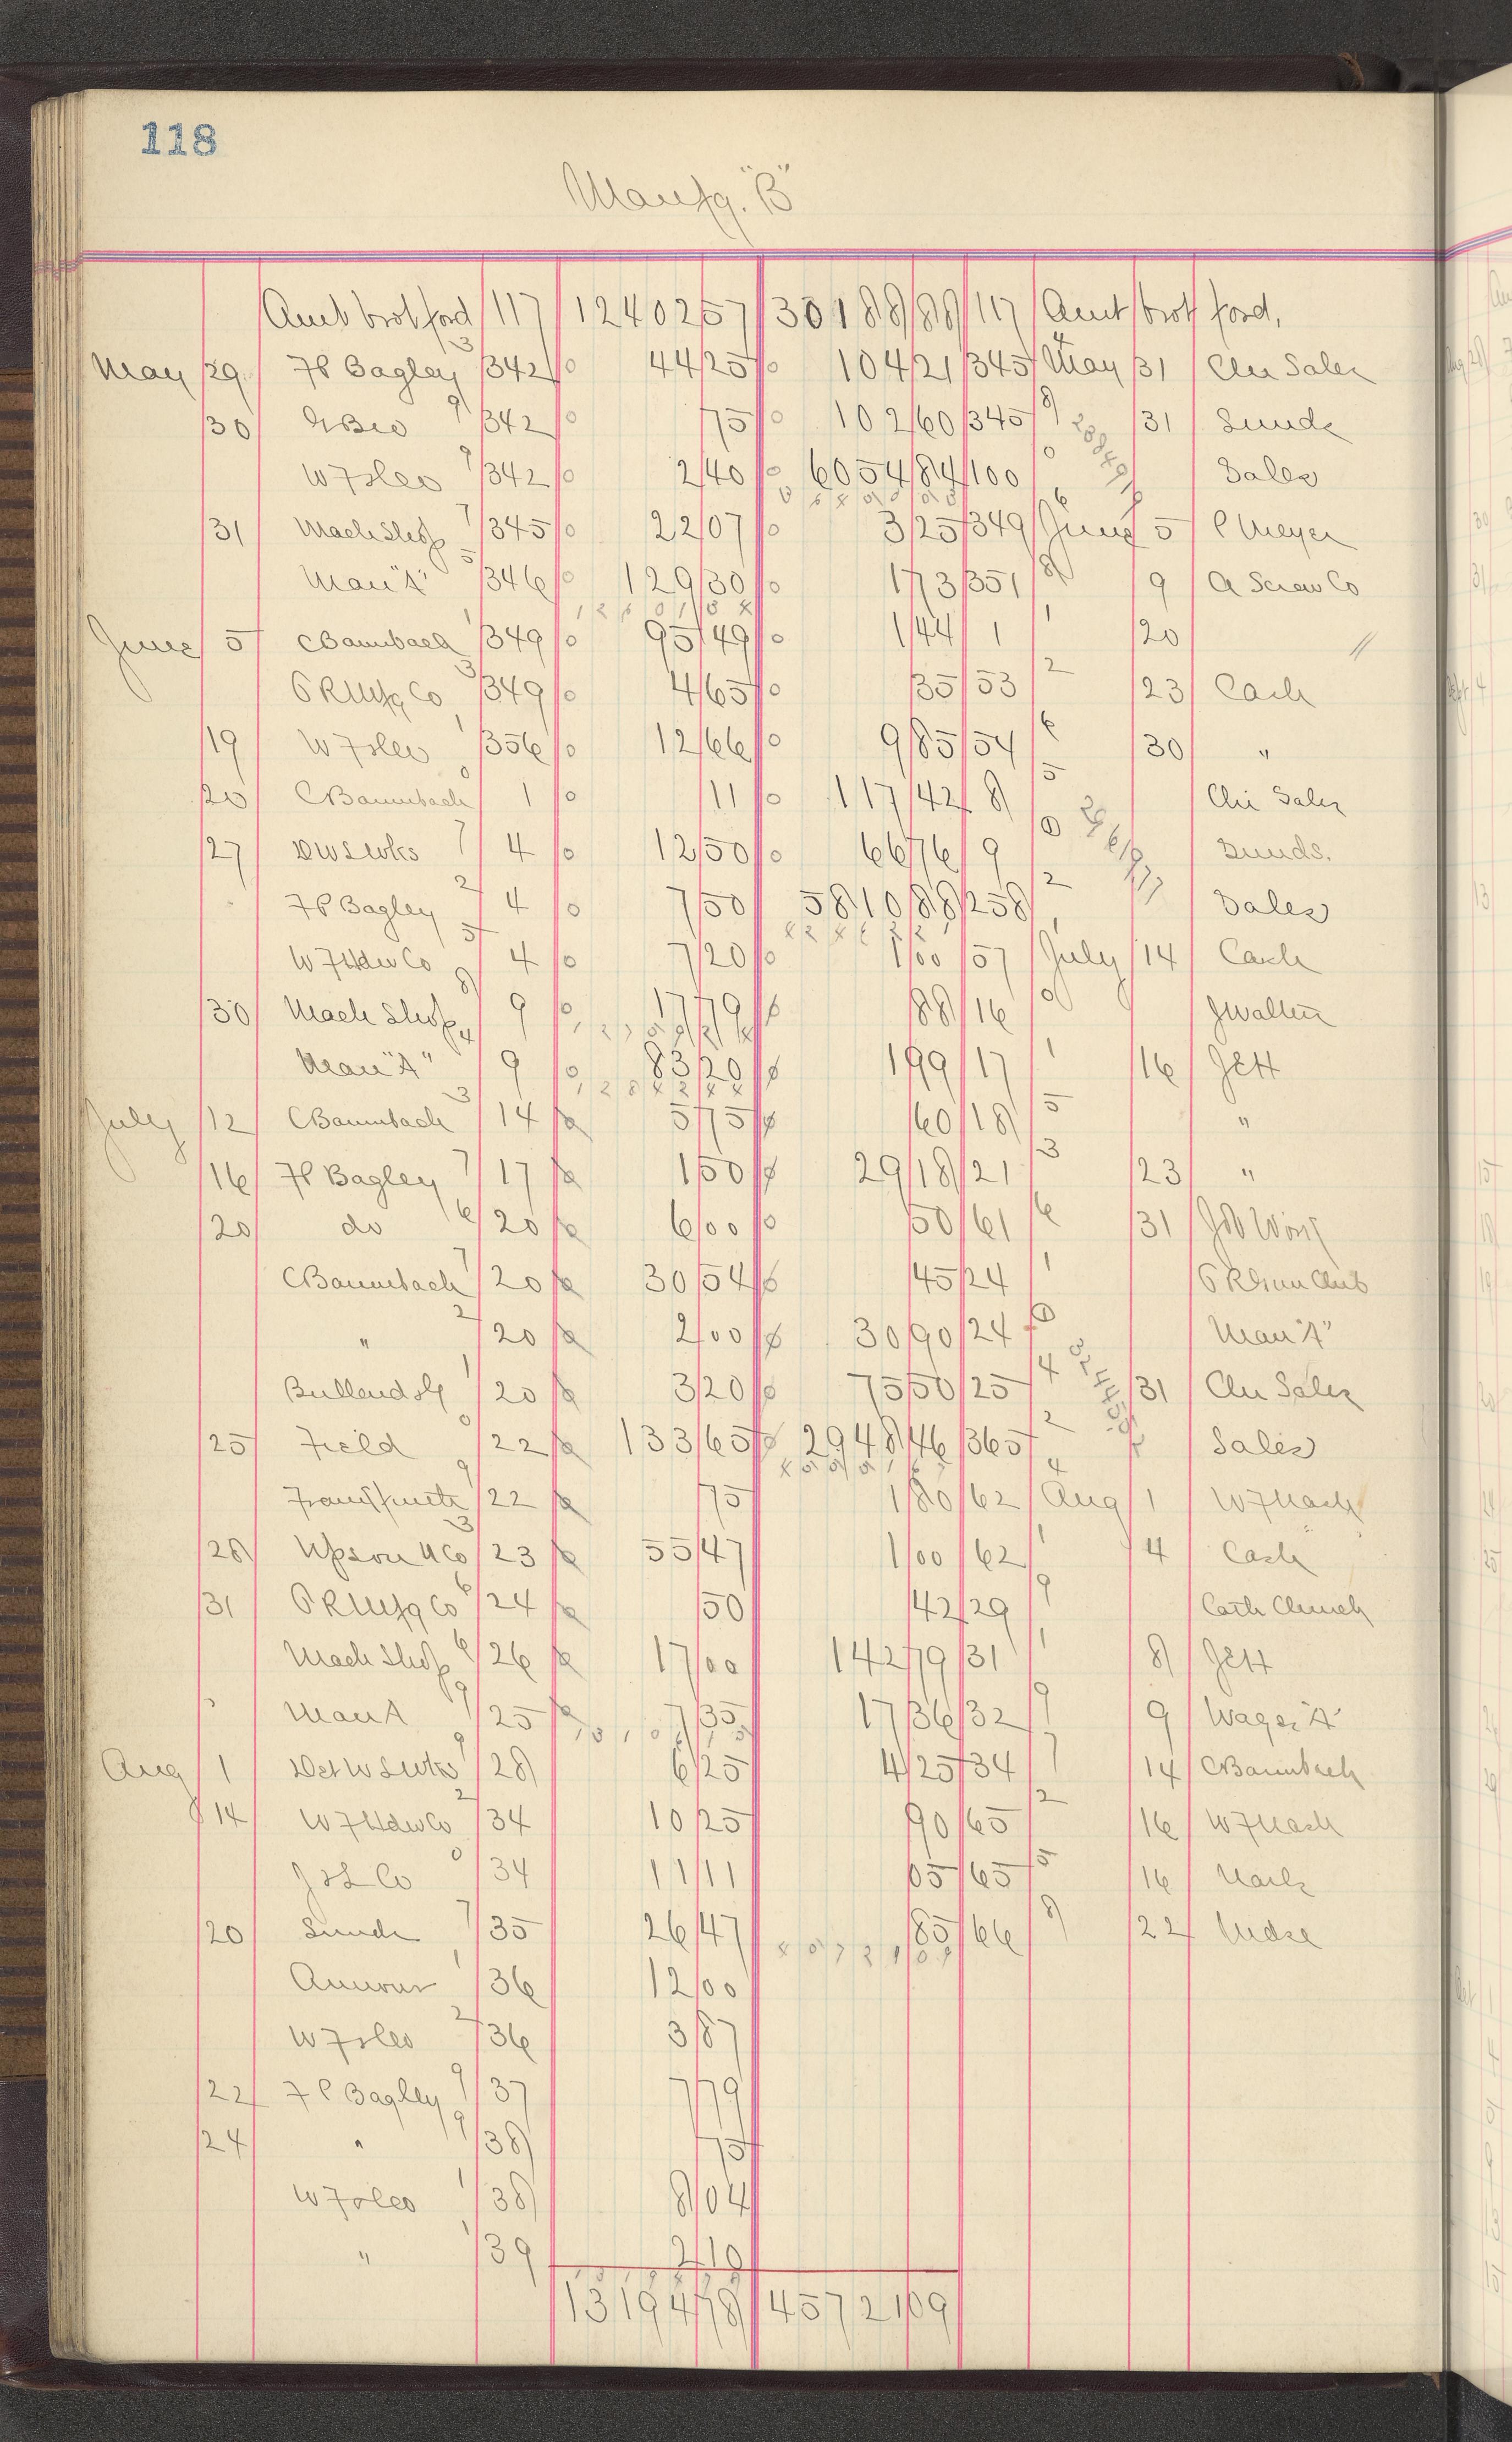 118
Manfg. "B"
Amt brot ford 117 12402 57 30188 88 117 Amt brot ford,
May 29 F C Bagley 342 44 25 104 21 345 May 31 Chi Sales
30 342 75 102 60 345 31 Sunds
W F & Co 342 2 40 6054 84 100 Sales
31 Mach Shop 345 22 07 3 25 349 June 5 C Meyer
Man "A" 346 129 30 1 73 351 9 A Screw Co
June 5 C Baumbach 349 95 49 1 44 1 20 "
O R Mfg Co 349 4 65 35 53 23 Cash
19 W F & Co 356 12 66 9 85 54 30 "
20 C Baumbach 1 11 117 42 8 Chi Sales
27 D W & Wks 4 12 50 6 67 6 9 Sunds.
F C Bagley 4 7 50 5810 88 258 Sales
W F Hdw Co 4 7 20 1 00 57 July 14 Cash
30 Mach Shop 9 17 79 88 16 J Walter
Man "A" 9 83 20 1 99 17 16 J E H
July 12 C Baumbach 14 5 75 60 18 "
16 F C Bagley 17 1 50 29 18 21 23 "
20 do 20 6 00 50 61 31 Job Work
C Baumbach 20 30 54 45 24
" 20 2 00 30 90 24 Man "A"
20 3 20 75 50 25 31 Chi Sales
25 Field 22 133 65 2948 46 365 Sales
22 75 1 80 62 Aug 1 W F Nash
28 Upson N Co 23 55 47 1 00 62 4 Cash
31 O R Mfg Co 24 50 42 29 Cath Church
Mach Shop 26 17 00 142 79 31 8 J E H
Man A 25 7 35 17 36 32 9 Wages "A"
Aug 1 Det W & Wks 28 6 25 4 25 34 14 C Baumbach
14 W F Hdw Co 34 10 25 90 65 16 W F Nash
34 11 11 65 65 16 Nails
20 Sunds 35 26 47 85 66 22 Mdse
36 12 00
W F & Co 36 3 87
22 F C Bagley 37 7 79
24 " 38 75
W F & Co 38 8 04
" 39 2 10
13194 78 45721 09